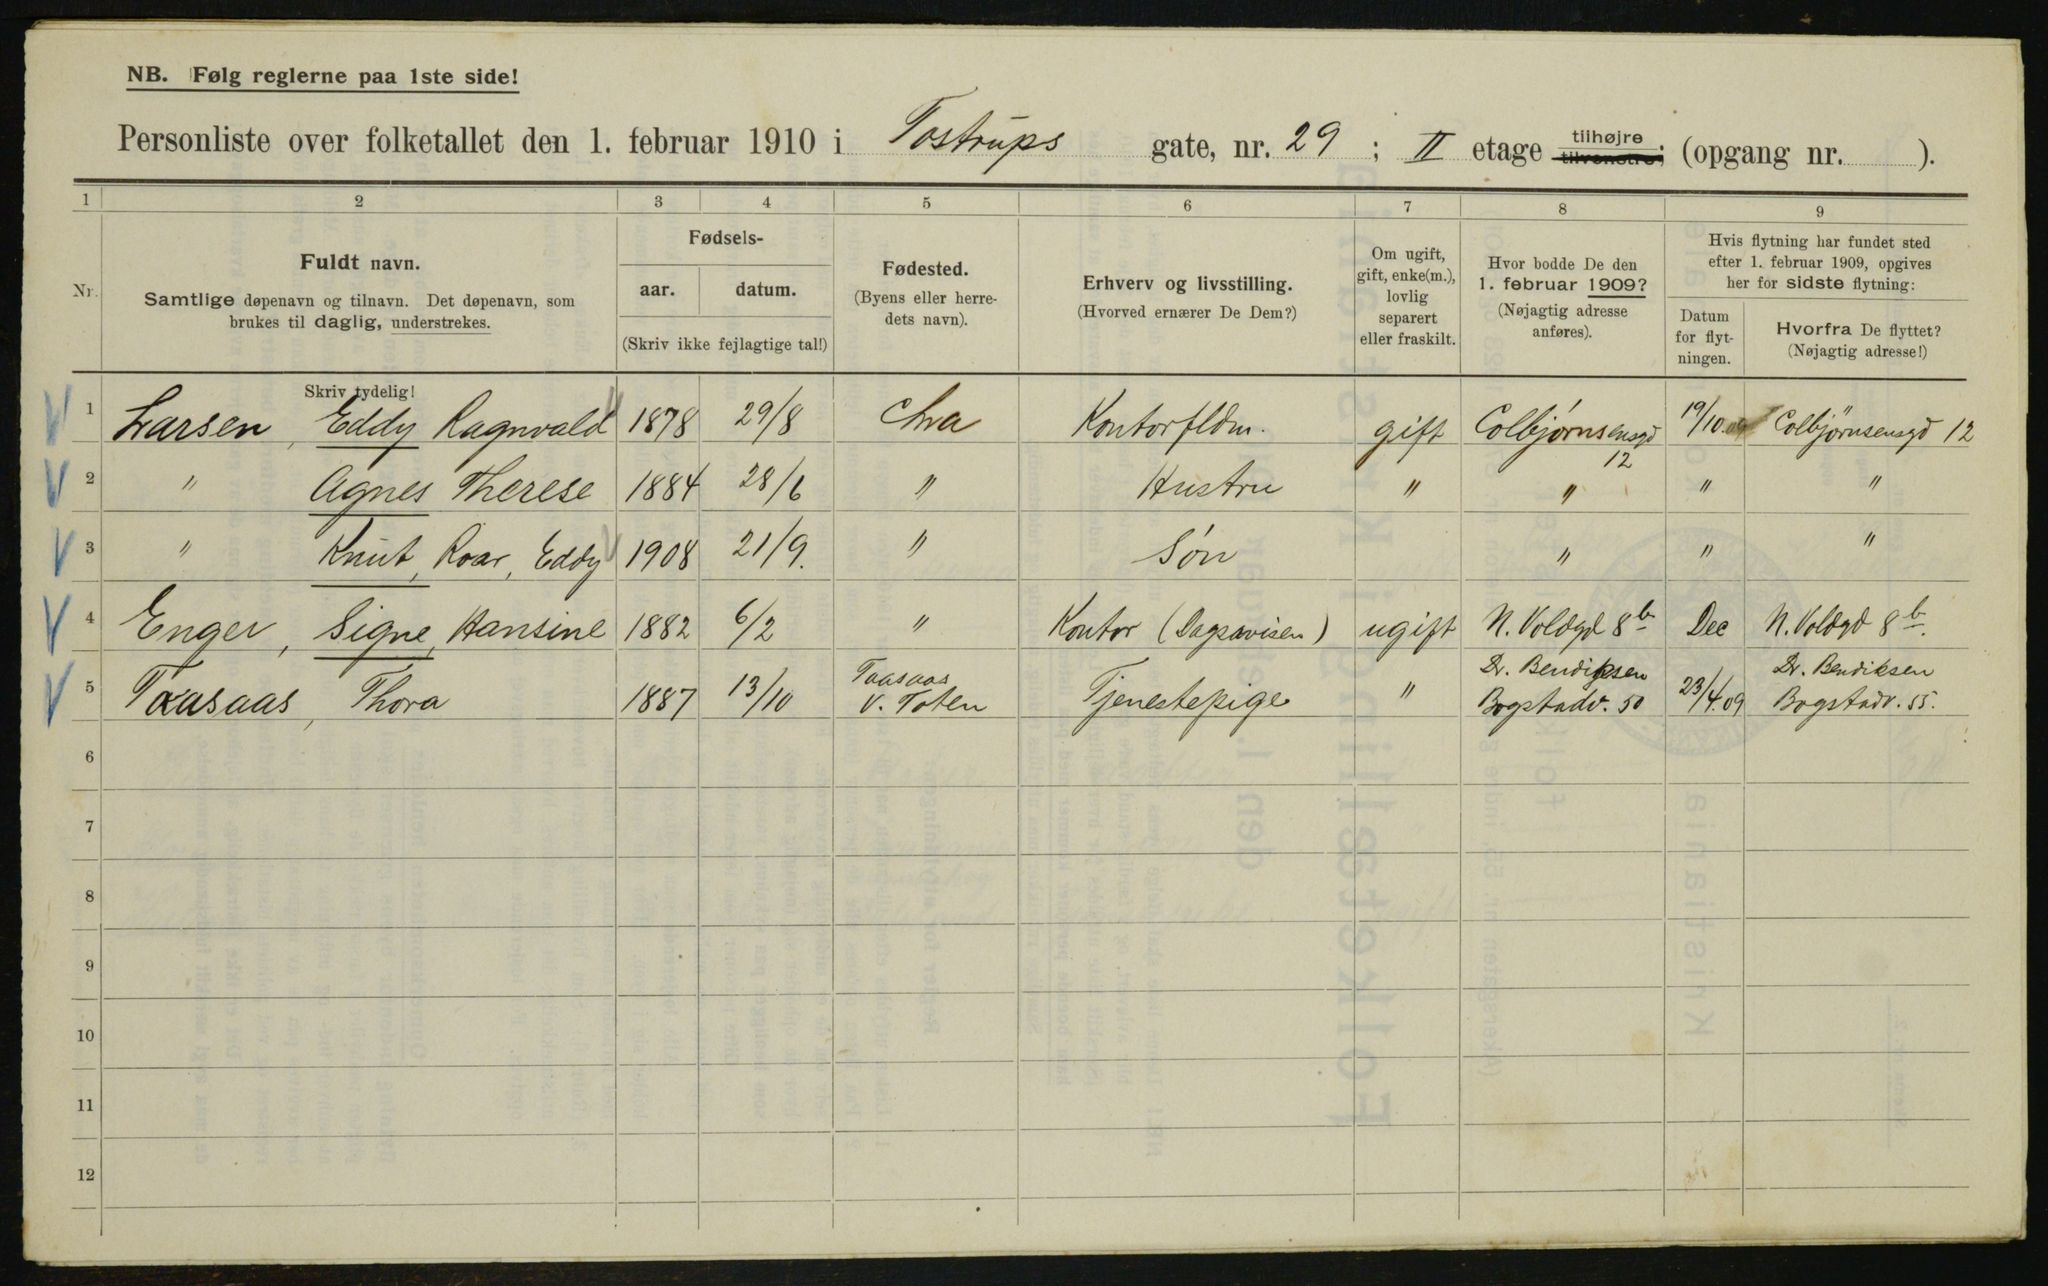 NB. Følg reglerne paa 1ste side!
Personliste over folketallet den 1. februar 1910 i Tostrups gate, nr. 29 ; II etage tilhøjre tilvenstre; (opgang nr. ).
1 2 3 4 5 6 7 8 9
Nr.
Fuldt navn.
Samtlige døpenavn og tilnavn. Det døpenavn, som
brukes til daglig, understrekes.
Fødsels-
aar. datum.
(Skriv ikke fejlagtige tal!)
Fødested.
(Byens eller herre-
dets navn).
Erhverv og livsstilling.
(Hvorved ernærer De Dem?)
Om ugift,
gift, enke(m.),
lovlig
separert
eller fraskilt.
Hvor bodde De den
1. februar 1909?
(Nøjagtig adresse
anføres).
Hvis flytning har fundet sted
efter 1. februar 1909, opgives
her for sidste flytning:
Datum
for flyt-
ningen.
Hvorfra De flyttet?
(Nøjagtig adresse!)
Skriv tydelig!
1 Larsen, Eddy Ragnvald 1878 29/8 Chra Kontorfldm. gift Colbjørnsensgd 12 19/10.09 Colbjørnsensgd 12
2 " Agnes Therese 1884 28/6 " Hustru " " " "
3 " Knut, Roar, Eddy 1908 21/9. " Søn " " "
4 Enger, Signe, Hansine 1882 6/2 " Kontor (Dagsavisen) ugift N. Voldgd 8b Dec N. Voldgd 8b.
5 Taasaas, Thora 1887 13/10 Taasaas V. Toten Tjenestepige " Dr. Bendiksen Bogstadv. 50 23/4.09 Dr. Bendiksen Bogstadv. 55.
6
7
8
9
10
11
12